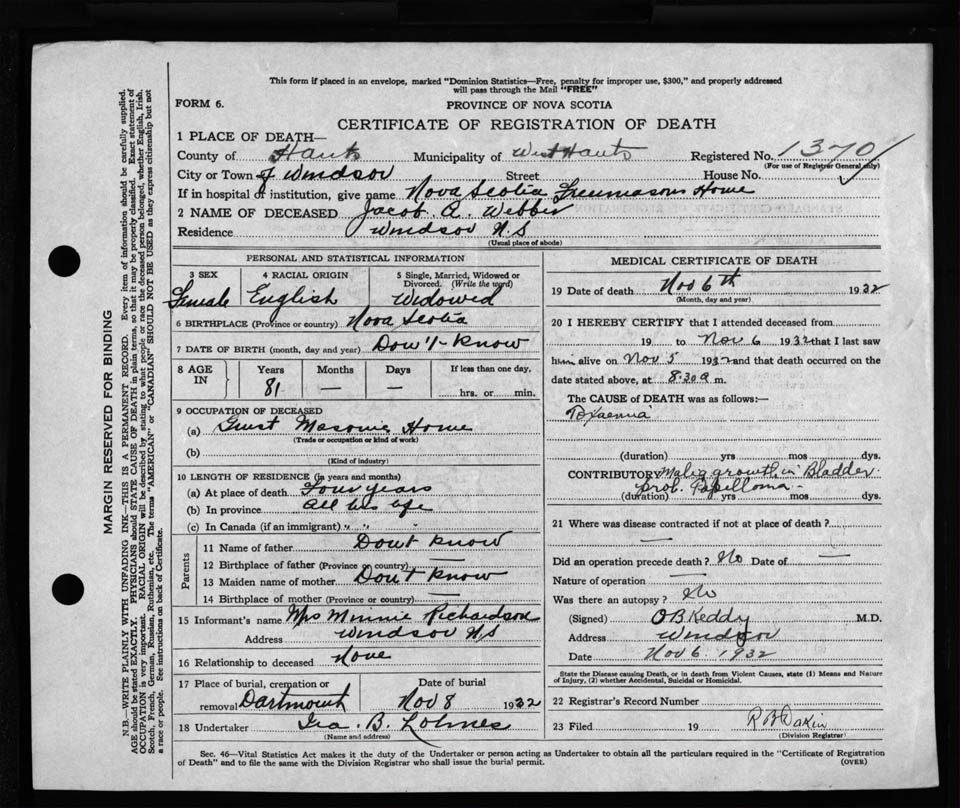 This form if placed in an envelope, marked "Dominion Statistics—Free, penalty for improper use, $300," and properly addressed
will pass through the Mail "FREE"
FORM 6.
PROVINCE OF NOVA SCOTIA
CERTIFICATE OF REGISTRATION OF DEATH
1 PLACE OF DEATH—
County of Hants Municipality of West Hants Registered No. 1370
(For use of Registrar General only)
City or Town of Windsor Street House No.
If in hospital or institution, give name Nova Scotia Freemasons Home
2 NAME OF DECEASED Jacob A. Webber
Residence Windsor N.S
(Usual place of abode)
PERSONAL AND STATISTICAL INFORMATION
3 SEX 4 RACIAL ORIGIN 5 Single, Married, Widowed or
Divorced. (Write the word)
Female English Widowed
6 BIRTHPLACE (Province or country) Nova Scotia
7 DATE OF BIRTH (month, day and year) Don't Know
8 AGE IN Years Months Days If less than one day,
81 — — hrs. or min.
9 OCCUPATION OF DECEASED
(a) Guest Masonic Home
(Trade or occupation or kind of work)
(b)
(Kind of industry)
10 LENGTH OF RESIDENCE (in years and months)
(a) At place of death Four years
(b) In province All his life
(c) In Canada (if an immigrant) " " "
Parents
11 Name of father Don't Know
12 Birthplace of father (Province or country) —
13 Maiden name of mother Don't Know
14 Birthplace of mother (Province or country) —
15 Informant's name Mrs Minnie Richardson
Address Windsor N.S
16 Relationship to deceased None
17 Place of burial, cremation or Date of burial
removal Dartmouth Nov 8 1932
18 Undertaker Ira. B. Lohnes
(Name and address)
MEDICAL CERTIFICATE OF DEATH
19 Date of death Nov 6th 1932
(Month, day and year)
20 I HEREBY CERTIFY that I attended deceased from
19 to Nov 6 1932 and that I last saw
him alive on Nov 5 1932 and that death occurred on the
date stated above, at 8.30 a m.
The CAUSE OF DEATH was as follows:—
Toxaemia
(duration) yrs mos dys.
CONTRIBUTORY Malig growth in Bladder.
prob. Papilloma.
(duration) yrs mos dys.
21 Where was disease contracted if not at place of death?
—
Did an operation precede death? No Date of —
Nature of operation —
Was there an autopsy? No
(Signed) O B Keddy M.D.
Address Windsor
Date Nov 6. 1932
State the Disease causing Death, or in death from Violent Causes, state (1) Means and Nature
of Injury, (2) whether Accidental, Suicidal or Homicidal.
22 Registrar's Record Number
23 Filed 19 R B Dakin
(Division Registrar)
Sec. 46—Vital Statistics Act makes it the duty of the Undertaker or person acting as Undertaker to obtain all the particulars required in the "Certificate of Registration
of Death" and to file the same with the Division Registrar who shall issue the burial permit.
(OVER)
MARGIN RESERVED FOR BINDING
N.B.—WRITE PLAINLY WITH UNFADING INK—THIS IS A PERMANENT RECORD. Every item of information should be carefully supplied.
AGE should be stated EXACTLY. PHYSICIANS should STATE CAUSE OF DEATH in plain terms, so that it may be properly classified. Exact statement of
OCCUPATION is very important. RACIAL ORIGIN will be described by stating to what people or race the deceased person belonged, whether English, Irish,
Scotch, French, German, Russian, Ruthenian, etc. The terms "AMERICAN" or "CANADIAN" SHOULD NOT BE USED as they express citizenship but not
a race or people. See instructions on back of Certificate.